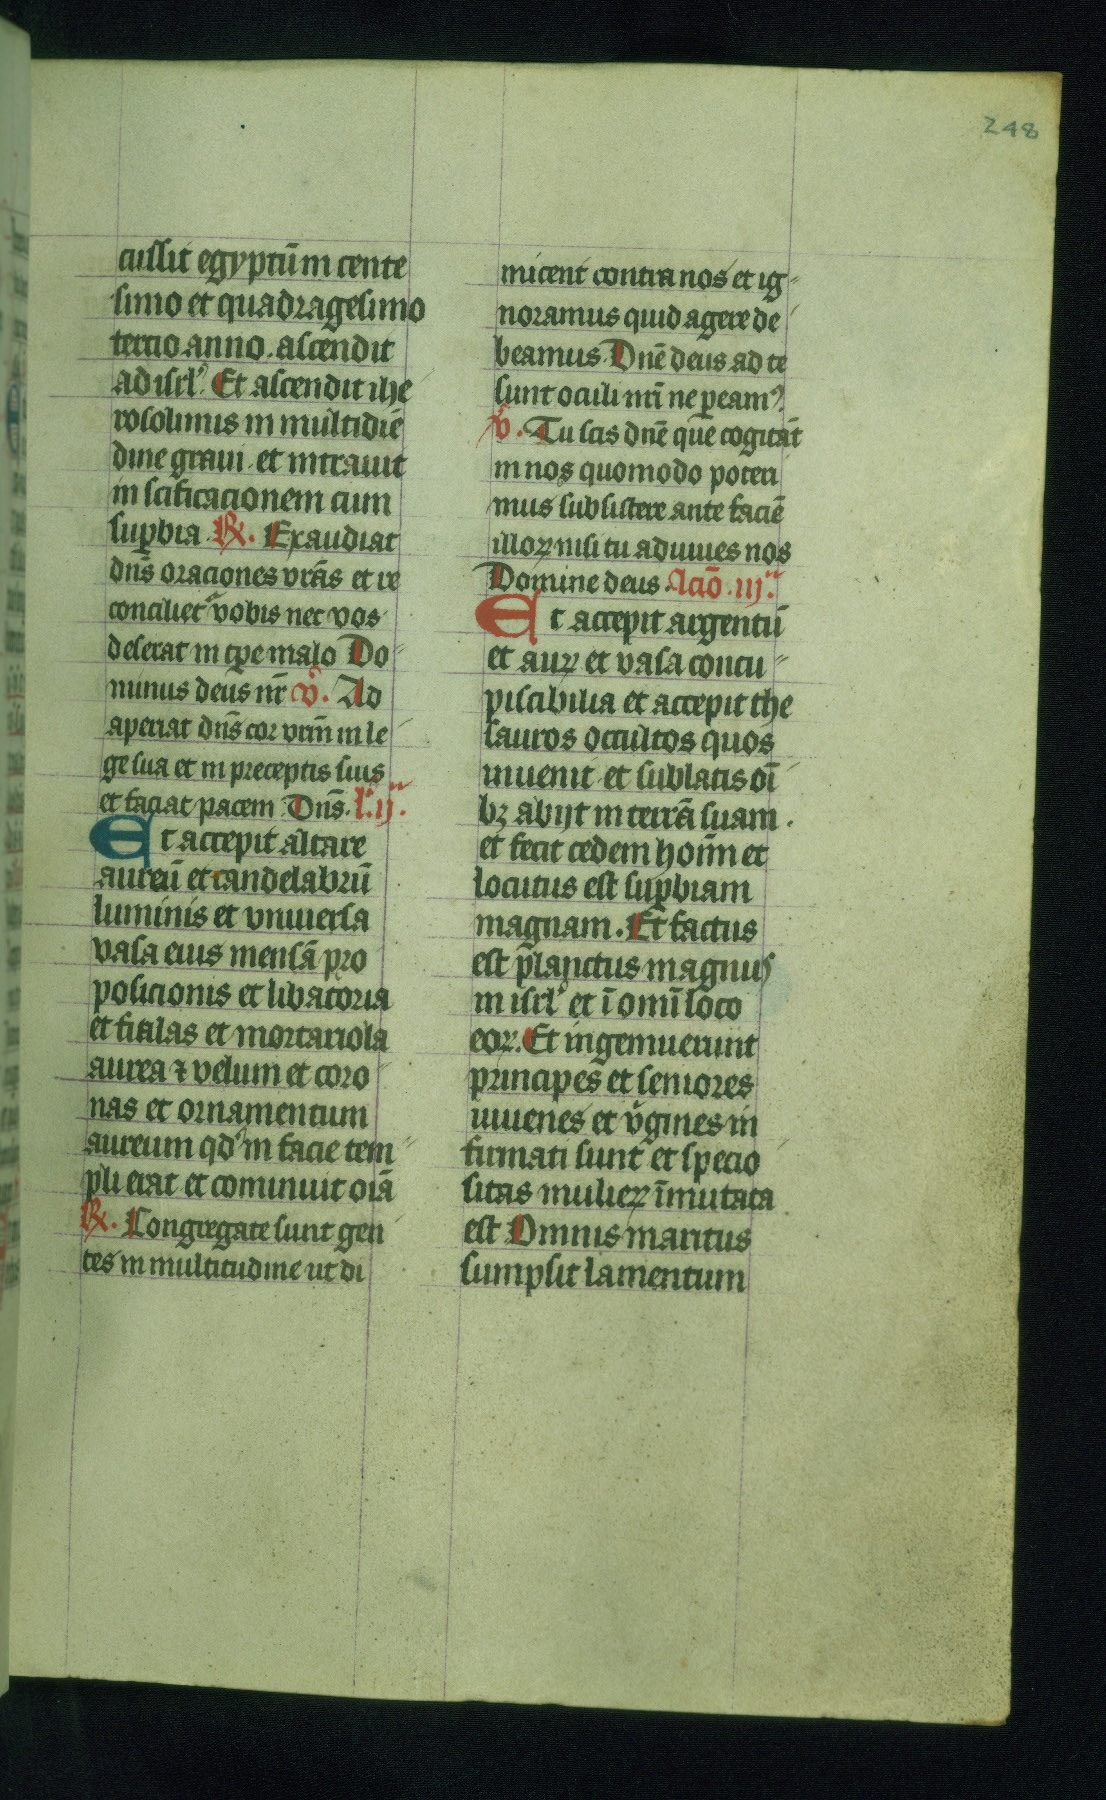 248
cussit egyptū in cente
simo et quadragesimo
tercio anno. ascendit
ad isrl'. Et ascendit ihe
rosolimis in multidiē
dine graui. et intrauit
in scificacionem cum
sup̱bia. R. Exaudiat
dn̄s oraciones vr̄as et re
conciliet' vobis nec vos
deserat in tp̱e malo Do-
minus deus nr̄ v. Ad
aperiat dn̄s cor vrm̄ in le
ge sua et in preceptis suis
et faciat pacem Dn̄s. l'. ij.
Et accepit altare
aureū et candelabrū
luminis et vniuersa
vasa eius mensā pro
posicionis et libatoria
et fialas et mortariola
aurea ⁊ velum et coro
nas et ornamentum
aureum qd' in facie tem
pli erat et cominuit oīa
R. Congregate sunt gen
tes in multitudine ut di
micent contra nos et ig-
noramus quid agere de
beamus. Dn̄e deus ad te
sunt oculi nr̄i ne p̱eam'.
v. Tu scis dn̄e que cogitāt
in nos quomodo poteri
mus subsistere ante faciē
illoꝝ nisi tu adiuues nos
Domine deus. lcīo. iij.
Et accepit argentū
et auꝝ et vasa concu-
piscibilia et accepit the
sauros occultos quos
inuenit. et sublatis oī
bꝫ abijt in terrā suam.
et fecit cedem hoīm et
locutus est sup̱biam
magnam. Et factus
est planctus magnus
in isrl' et ī omī loco
eoꝝ. Et ingemuerunt
principes et seniores
iuuenes et v'gines in
firmati sunt et specio
sitas mulieꝝ īmutata
est Omnis maritus
sumpsit lamentum